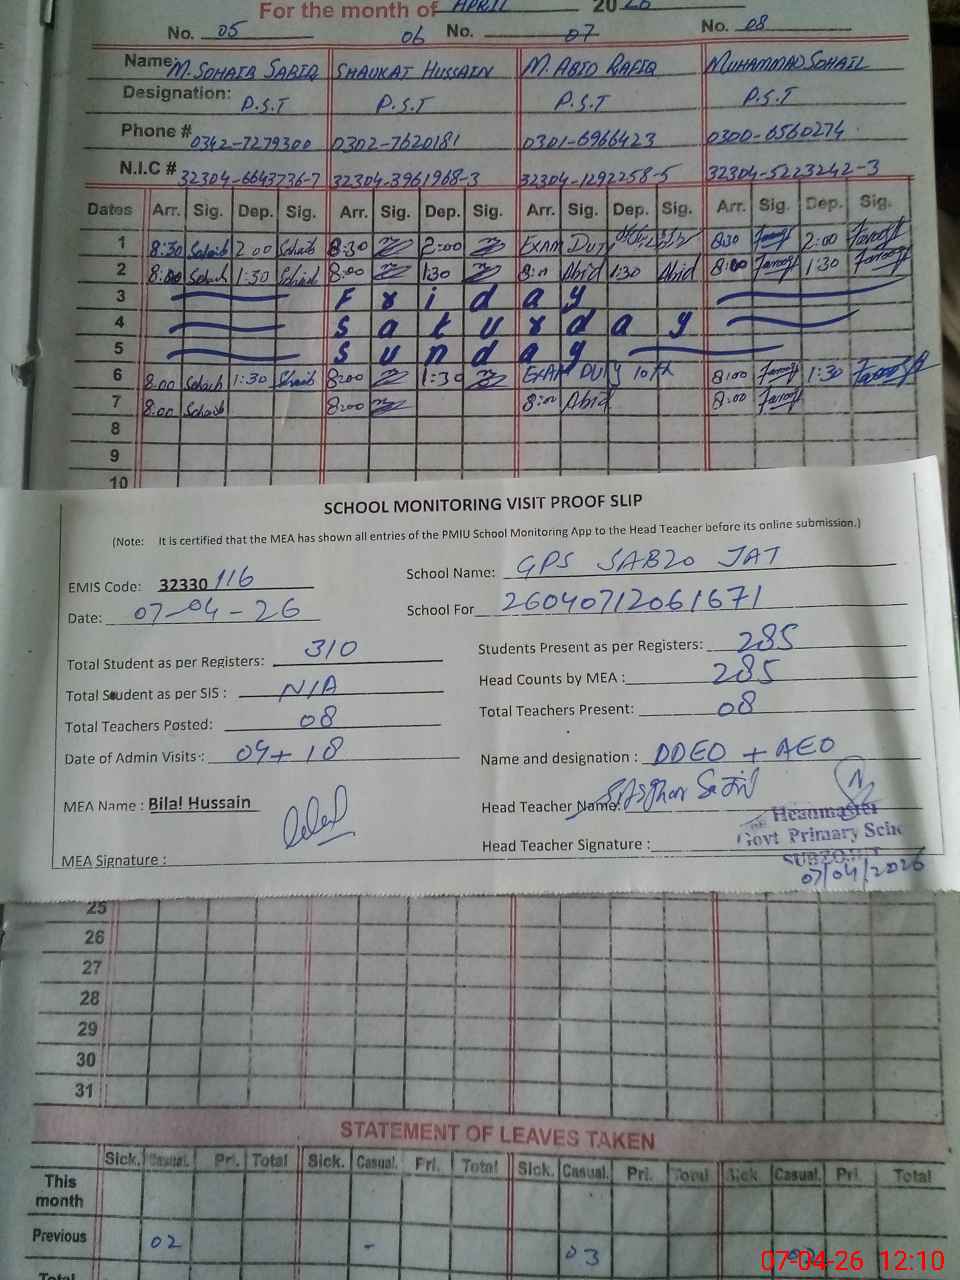 For the month of APRIL 2026
No. 05 06 No. 07 No. 08
Name: M. SOHAIB SABIR SHAUKAT HUSSAIN M. ABID RAFIQ MUHAMMAD SOHAIL
Designation: P.S.T P.S.T P.S.T P.S.T
Phone # 0342-7279300 0302-7620181 0301-6966423 0300-6560274
N.I.C # 32304-6643736-7 32304-3961968-3 32304-1292258-5 32304-5223242-3
Dates Arr. Sig. Dep. Sig. Arr. Sig. Dep. Sig. Arr. Sig. Dep. Sig. Arr. Sig. Dep. Sig.
1 8:30 Sohaib 2:00 Sohaib 8:30 2:00 EXAM DUTY 8:30 Farooq 2:00 Farooq
2 8:00 Sohaib 1:30 Sohaib 8:00 1:30 8:00 Abid 1:30 Abid 8:00 Farooq 1:30 Farooq
3 Friday
4 Saturday
5 Sunday
6 8:00 Sohaib 1:30 Sohaib 8:00 1:30 EXAM DUTY 10th 8:00 Farooq 1:30 Farooq
7 8:00 Sohaib 8:00 8:00 Abid 8:00 Farooq
8
9
10
SCHOOL MONITORING VISIT PROOF SLIP
(Note: It is certified that the MEA has shown all entries of the PMIU School Monitoring App to the Head Teacher before its online submission.)
EMIS Code: 32330116 School Name: GPS SABZO JAT
Date: 07-04-26 School For 26040712061671
Total Student as per Registers: 310 Students Present as per Registers: 285
Total Student as per SIS : N/A Head Counts by MEA : 285
Total Teachers Posted: 08 Total Teachers Present: 08
Date of Admin Visits : 04+18 Name and designation : DDEO + AEO
MEA Name : Bilal Hussain Head Teacher Name:
MEA Signature : Head Teacher Signature :
Headmaster
Govt Primary Scho
07/04/2026
25
26
27
28
29
30
31
STATEMENT OF LEAVES TAKEN
Sick. Casual. Pri. Total Sick. Casual. Pri. Total Sick. Casual. Pri. Total Sick Casual. Pri. Total
This month
Previous 02 - 03
Total
07-04-26 12:10